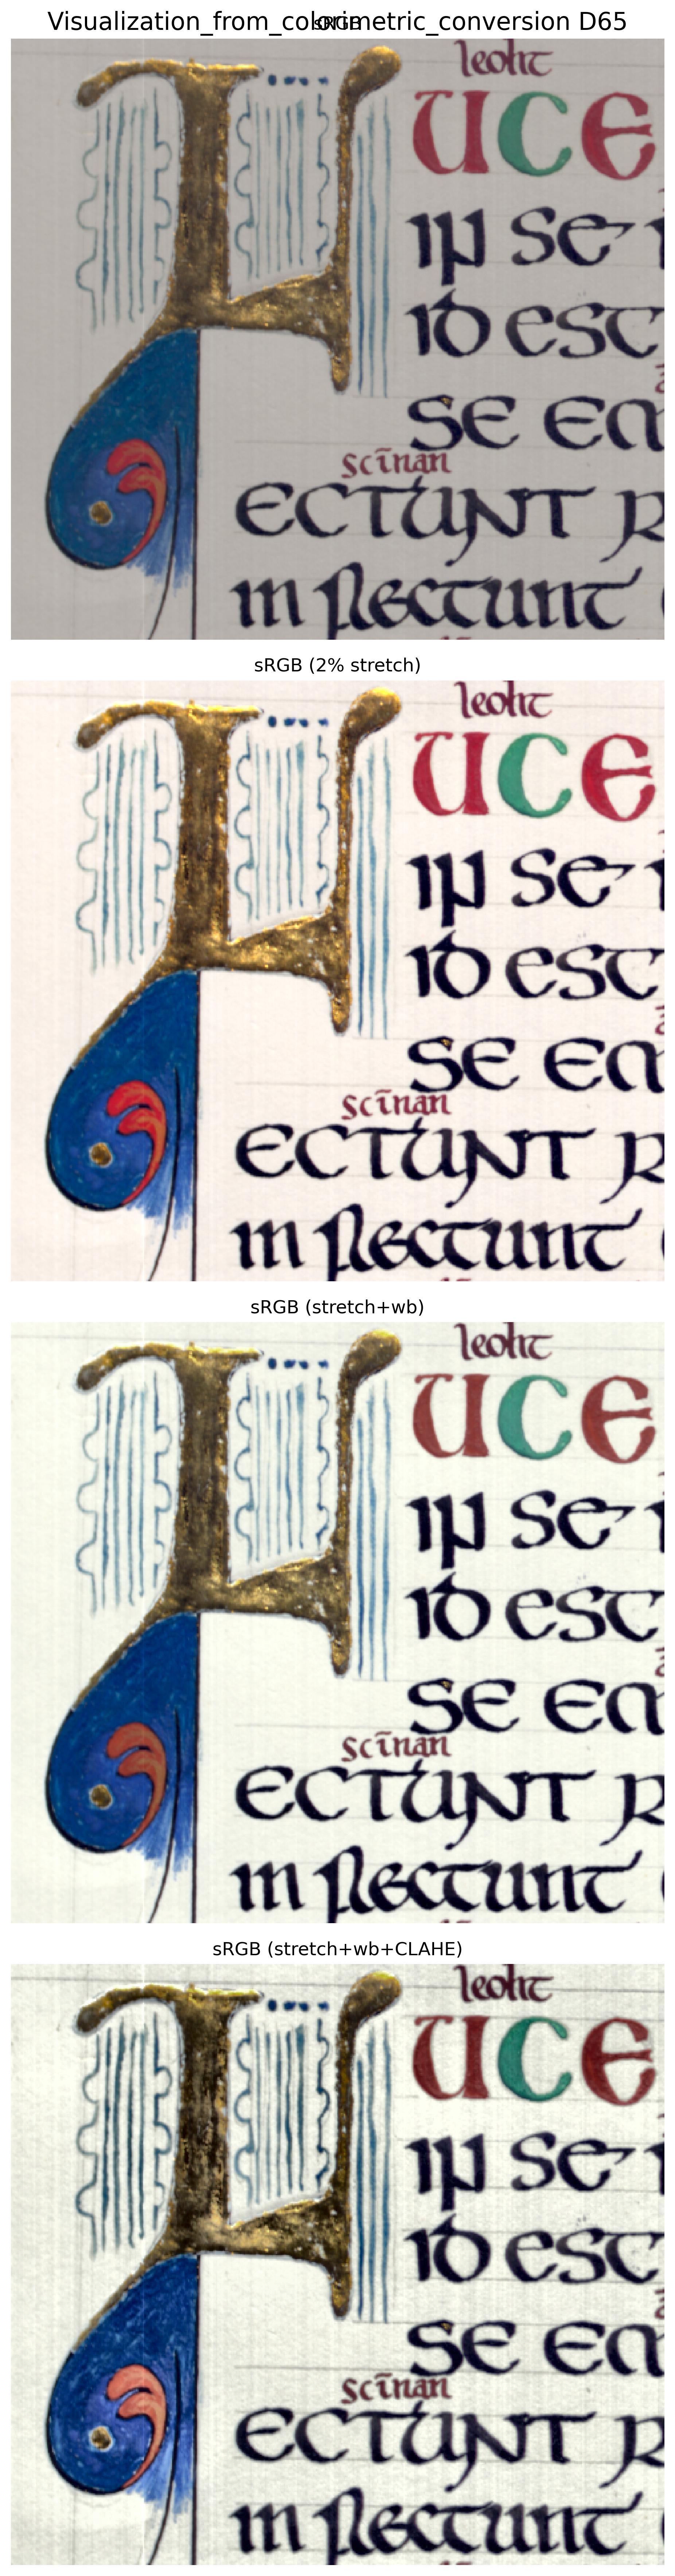 Visualization_from_colorimetric_conversion D65
sRGB
leoht
UCE
IN SE
ID EST
SE EM
scīnan
ECTUNT R
in flectunt
sRGB (2% stretch)
leoht
UCE
IN SE
ID EST
SE EM
scīnan
ECTUNT R
in flectunt
sRGB (stretch+wb)
leoht
UCE
IN SE
ID EST
SE EM
scīnan
ECTUNT R
in flectunt
sRGB (stretch+wb+CLAHE)
leoht
UCE
IN SE
ID EST
SE EM
scīnan
ECTUNT R
in flectunt